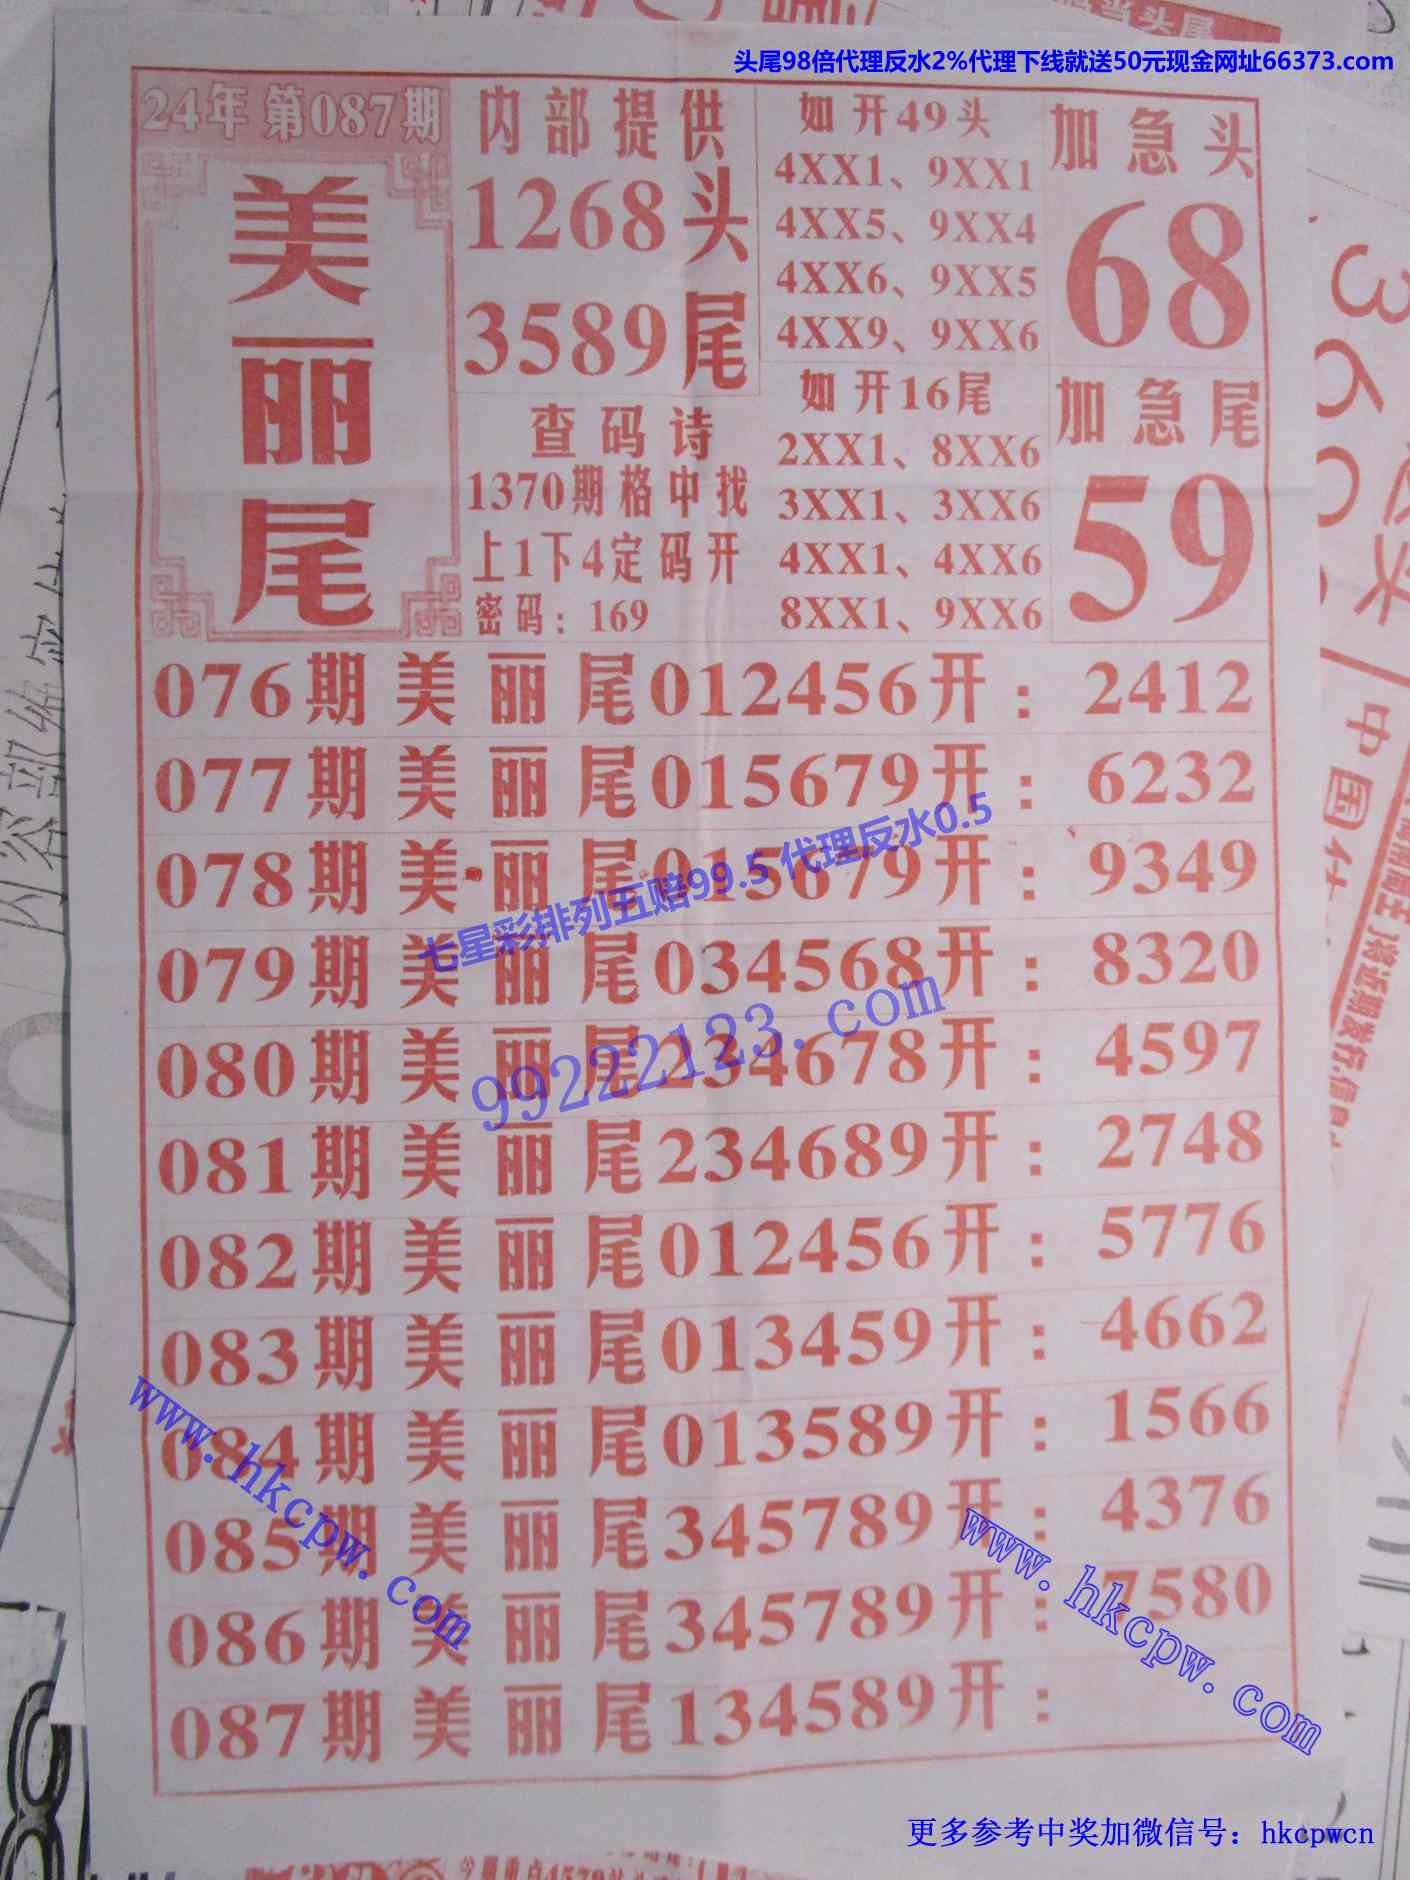 头尾98倍代理反水2%代理下线就送50元现金网址66373.com
24年 第087期
美丽尾
内部提供
1268头
3589尾
查码诗
1370期格中找
上1下4定码开
密码：169
如开49头
4XX1、9XX1
4XX5、9XX4
4XX6、9XX5
4XX9、9XX6
如开16尾
2XX1、8XX6
3XX1、3XX6
4XX1、4XX6
8XX1、9XX6
加急头
68
加急尾
59
076期美丽尾012456开：2412
077期美丽尾015679开：6232
078期美丽尾015679开：9349
079期美丽尾034568开：8320
080期美丽尾234678开：4597
081期美丽尾234689开：2748
082期美丽尾012456开：5776
083期美丽尾013459开：4662
084期美丽尾013589开：1566
085期美丽尾345789开：4376
086期美丽尾345789开：7580
087期美丽尾134589开：
七星彩排列五赔99.5 代理反水0.5
99222123.com
www.hkcpw.com
www.hkcpw.com
更多参考中奖加微信号：hkcpwcn